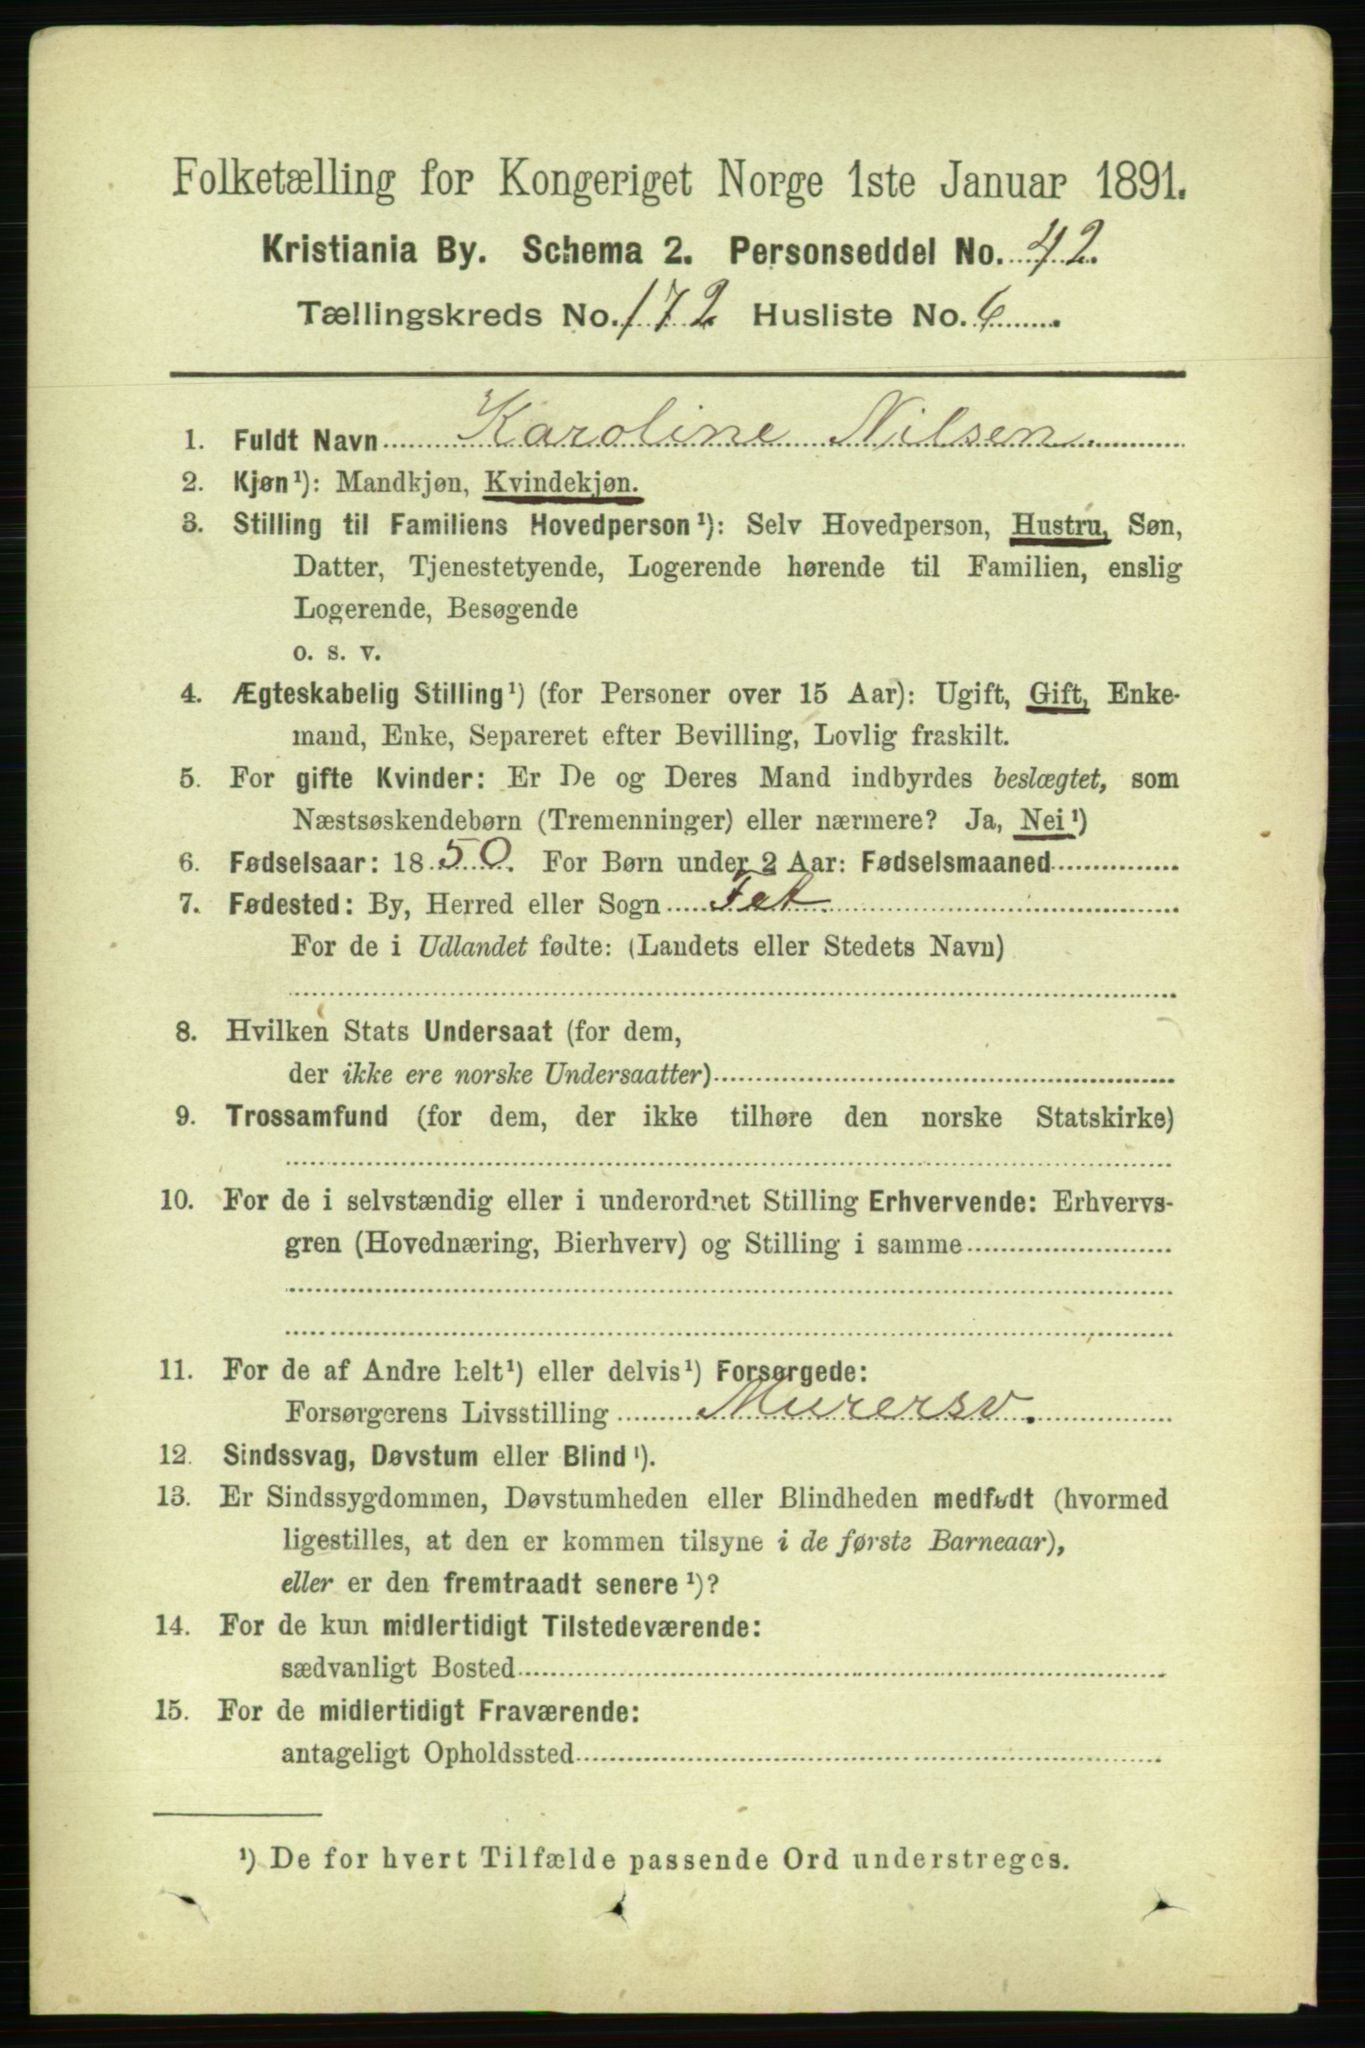 Folketælling for Kongeriget Norge 1ste Januar 1891.
Kristiania By. Schema 2. Personseddel No. 42.
Tællingskreds No. 172. Husliste No. 6
1. Fuldt Navn Karoline Nilsen.
2. Kjøn¹): Mandkjøn, Kvindekjøn.
3. Stilling til Familiens Hovedperson¹): Selv Hovedperson, Hustru, Søn,
Datter, Tjenestetyende, Logerende hørende til Familien, enslig
Logerende, Besøgende
o. s. v.
4. Ægteskabelig Stilling¹) (for Personer over 15 Aar): Ugift, Gift, Enke-
mand, Enke, Separeret efter Bevilling, Lovlig fraskilt.
5. For gifte Kvinder: Er De og Deres Mand indbyrdes beslægtet, som
Næstsøskendebørn (Tremenninger) eller nærmere? Ja, Nei¹)
6. Fødselsaar: 1850. For Børn under 2 Aar: Fødselsmaaned
7. Fødested: By, Herred eller Sogn Fet.
For de i Udlandet fødte: (Landets eller Stedets Navn)
8. Hvilken Stats Undersaat (for dem,
der ikke ere norske Undersaatter)
9. Trossamfund (for dem, der ikke tilhøre den norske Statskirke)
10. For de i selvstændig eller i underordnet Stilling Erhvervende: Erhvervs-
gren (Hovednæring, Bierhverv) og Stilling i samme
11. For de af Andre helt¹) eller delvis¹) Forsørgede:
Forsørgerens Livsstilling Murersv.
12. Sindssvag, Døvstum eller Blind¹).
13. Er Sindssygdommen, Døvstumheden eller Blindheden medfødt (hvormed
ligestilles, at den er kommen tilsyne i de første Barneaar),
eller er den fremtraadt senere¹)?
14. For de kun midlertidigt Tilstedeværende:
sædvanligt Bosted
15. For de midlertidigt Fraværende:
antageligt Opholdssted
¹) De for hvert Tilfælde passende Ord understreges.